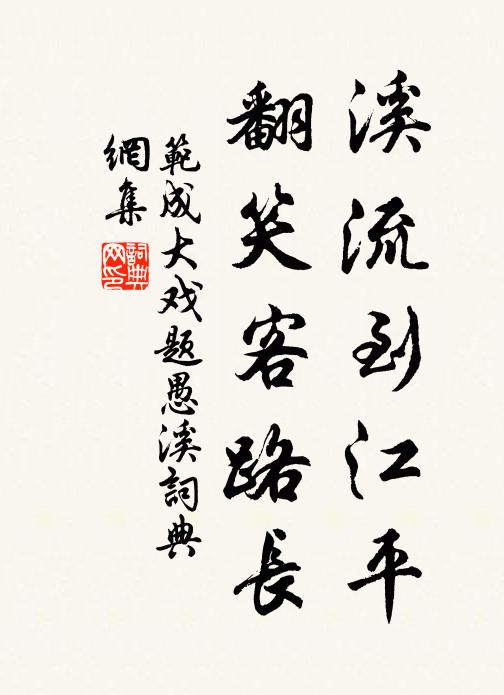 溪流到江平
翻笑客路長
範成大戏题愚溪詞典
網集
詞典
网印